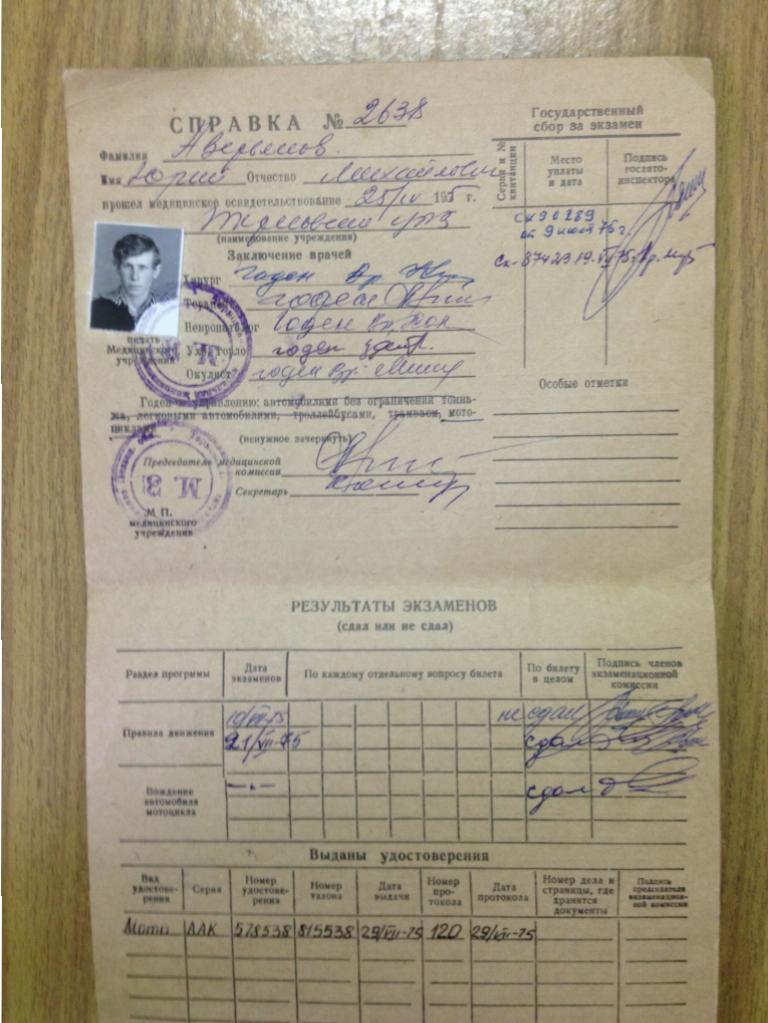 СПРАВКА № 2638
Фамилия Аверьянов
Имя Юрий Отчество Михайлович
прошел медицинское освидетельствование 25/IV 1975 г.
(наименование учреждения)
Заключение врачей
Хирург годен
Терапевт годен
Невропатолог годен
Ухо, горло годен
Окулист годен
печать
Медицинского
учреждения
Годен к управлению: автомобилями без ограничения тонна-
жа, легковыми автомобилями, троллейбусами, трамваем, мото-
циклами
(ненужное зачеркнуть)
Председатель медицинской
комиссии
Секретарь
М. З.
М П.
медицинского
учреждения
Государственный
сбор за экзамен
Серия и №
квитанции
Место
уплаты
и дата
Подпись
госавто-
инспектора
Особые отметки
РЕЗУЛЬТАТЫ ЭКЗАМЕНОВ
(сдал или не сдал)
Раздел программы
Дата
экзаменов
По каждому отдельному вопросу билета
По билету
в целом
Подпись членов
экзаменационной
комиссии
Правила движения
10/VII-75 не сдал
21/VII-75 сдал
Вождение
автомобиля
мотоцикла
—"— сдал
Выданы удостоверения
Вид
удостове-
рения
Серия
Номер
удостове-
рения
Номер
талона
Дата
выдачи
Номер
про-
токола
Дата
протокола
Номер дела и
страницы, где
хранятся
документы
Подпись
председателя
экзаменацион-
ной комиссии
Мото ААК 578538 815538 29/VII-75 120 29/VII-75